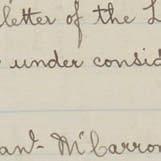 letter of the L
under consid
Mc Carron